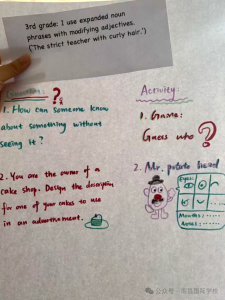 3rd grade: I use expanded noun
phrases with modifying adjectives.
('The strict teacher with curly hair.')
?
1. How can someone know
about something without
seeing it?
2. You are the owner of a
cake shop. Design the description
for one of your cakes to use
in an advertisement.
Activity:
1. Game:
Guess who?
2. Mr. potato head
Eyes:
Mouths:
公众号